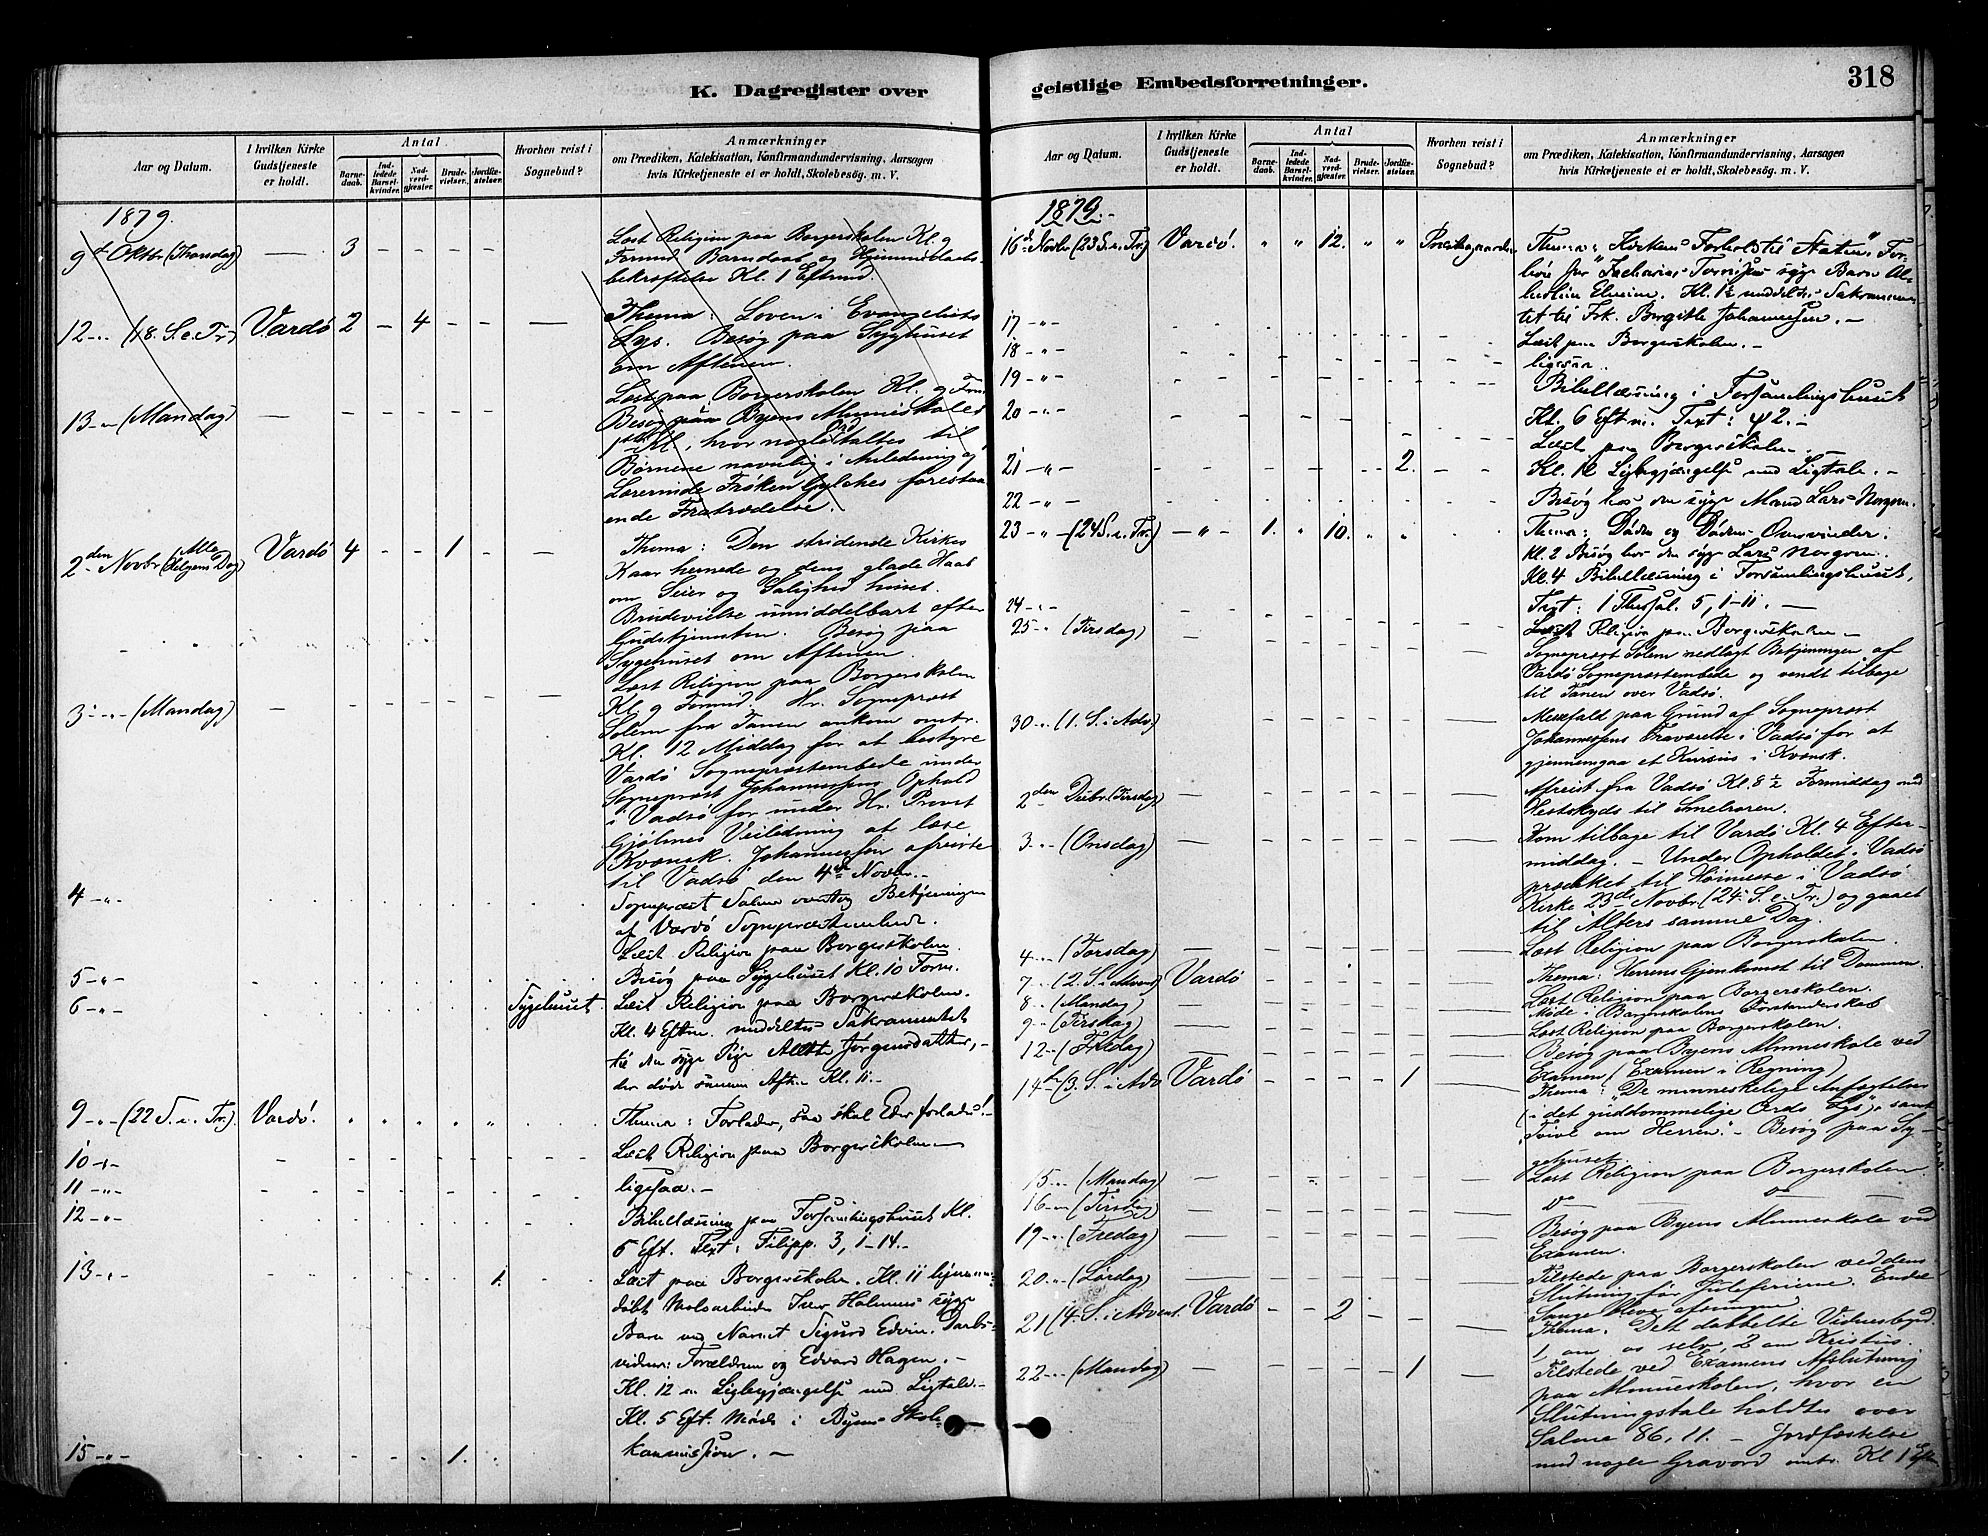 K. Dagregister over
Aar og Datum.
I hvilken Kirke
Gudstjeneste
er holdt.
Antal
Barne-
daab.
Ind-
ledede
Barsel-
kvinder.
Nad-
verd-
gjester.
Brude-
vielser.
Jordfæ-
stelser.
Hvorhen reist i
Sognebud?
Anmærkninger
om Prædiken, Katekisation, Konfirmandundervisning, Aarsagen
hvis Kirketjeneste ei er holdt, Skolebesøg. m. V.
1879.
9de Oktbr (Thorsdag) — 3 — — — —
Læst Religion paa Borgerskolen Kl. 9
Formd. Barnedaab og Hjemmedaabs-
bekræftelse Kl. 1 Eftmd.
12 -"- (18. S. e. Tr) Vardø 2 — 4 — — —
Thema: Loven i Evangeliets
Lys. Besøg paa Sygehuset
om Aftenen.
13 -"- (Mandag) —
Læst paa Borgerskolen Kl. 9 Frm.
Besøg paa Byens Almueskoles
1ste Kl., hvor nogle Ord taltes til
Børnene navnlig i Anledning af
Lærerinde Frøken Gylches forestaa
ende Fratrædelse.
2den Novbr (Alle Helgens Dag) Vardø 4 — — 1 — —
Thema: Den stridende Kirkes
Kaar hernede og dens glade Haab
om Seier og Salighed hisset.
Brudevielse umiddelbart efter
Gudstjenesten. Besøg paa
Sygehuset om Aftenen.
3 -"- (Mandag) —
Læst Religion paa Borgerskolen
Kl. 9 Formd. Hr. Sogneprest
Solem fra Tanen ankom omtr.
Kl. 12 Middag for at bestyre
Vardø Sogneprestembede under
Sogneprest Johannessens Ophold
i Vadsø for under Hr. Provst
Gjølmes Veiledning at læse
Kvænsk. Johannessen afreiste
til Vadsø den 4de Novbr.-
4 -"-
Sogneprest Solem overtog Betjeningen
af Vardø Sogneprestembede.
Læst Religion paa Borgerskolen.
5 -"-
Besøg paa Sygehuset Kl. 10 Form.
6 -"- Sygehuset.
Læst Religion paa Borgerskolen.
Kl. 4 Eftm. meddeltes Sakramentet
til den syge Pige Jørgensdatter,-
der døde samme Aften Kl. 11.-
9 -"- (22 S. e. Tr.) Vardø!
Thema: Forlader, saa skal Eder forlades!-
10 -"-
Læst Religion paa Borgerskolen
11 -"-
ligesaa.-
12 -"-
Bibellæsning paa Forsamlingshuset Kl.
5 Eft. Text: Filipp. 3, 1-14.-
13 -"- 1.
Læst paa Borgerskolen. Kl. 11 hjemme-
døbt Holmens syge
Barn ved Navnet Sigurd Edvin. Daabs-
vidner: Forældrene og Edvard Hagen.-
Kl. 12 en Ligbegjængelse med Ligtale.-
Kl. 5 Eft. Møde i Byens Skole-
15 -"- 1.
kommission.-
geistlige Embedsforretninger.
318
Aar og Datum.
I hvilken Kirke
Gudstjeneste
er holdt.
Antal
Barne-
daab.
Ind-
ledede
Barsel-
kvinder.
Nad-
verd-
gjester.
Brude-
vielser.
Jordfæ-
stelser.
Hvorhen reist i
Sognebud?
Anmærkninger
om Prædiken, Katekisation, Konfirmandundervisning, Aarsagen
hvis Kirketjeneste ei er holdt, Skolebesøg. m. V.
1879.-
16de Novbr (23 S. e. Tr) Vardø. " " 12. " " Prestegaarden
Thema: Kirkens Forhold til Staten. For-
bøn for Zacharias syge Barn
Kl. 1½ meddeltes Sakramen-
tet til Frk. Bergitte Johannessen.-
17 -"-
Læst paa Borgerskolen.-
18 -"-
ligesaa.
19 -"-
Bibellæsning i Forsamlingshuset
20 -"-
Kl. 6 Eftm. Text: ψ 2.-
Læst paa Borgerskolen.-
21 -"- 2.
Kl. 12 Ligbegjængelse med Ligtale.-
22 -"-
Besøg hos den syge Mand Lars Norgren.
23 -"- (24 S. e. Tr.) -"- 1. " 10. " "
Thema: Døden og Dødens Overvinder.
Kl. 2 Besøg hos den syge Lars Norgren.
Kl. 4 Bibellæsning i Forsamlingshuset,
Text: 1 Thessal. 5, 1-11.-
24 -"-
Læst Religion paa Borgerskolen-
25 -"- (Tirsdag)
Sogneprest Solem nedlagt Betjeningen af
Vardø Sogneprestembede og vendt tilbage
til Tanen over Vadsø.
30 -"- (1. S. i Adv.)
Messefald paa Grund af Sogneprest
Johannessens Fraværelse i Vadsø for at
gjennemgaa et Kursus i Kvænsk.
2den Decbr. (Tirsdag)
Afreist fra Vadsø Kl. 8½ Formiddag med
Hestskyds til Smelroren.
3 -"- (Onsdag)
Kom tilbage til Vardø Kl. 4 Efter-
middag. - Under Opholdet i Vadsø
præket til Høimesse i Vadsø
Kirke 23de Novbr (24. S. e. Tr.) og gaaet
til Alters samme Dag.
4 -"- (Torsdag)
Læst Religion paa Borgerskolen.
7 -"- (2. S. i Advent) Vardø
Thema: Herrens Gjenkomst til Dommen.
8 -"- (Mandag)
Læst Religion paa Borgerskolen.
9 -"- (Tirsdag)
Møde i Borgerskolens Forstanderskab
Læst Religion paa Borgerskolen.
12 -"- (Fredag)
Besøg paa Byens Almueskole ved
Examen (Examen i Regning)
14de (3. S. i Adv Vardø 1
Thema: "De menneskelige Anfægtelser
(i det guddommelige Ords Lys", samt
Tvivl om Herren." - Besøg paa Sy-
gehuset.
15 -"- (Mandag)
Læst Religion paa Borgerskolen
16 -"- (Tirsdag)
19 -"- (Fredag)
Besøg paa Byens Almueskole ved
Examen.
20 -"- (Lørdag)
Tilstede paa Borgerskolen ved dens
Slutning før Juleferierne. Endel
Sange bleve afsungne.
21 (4. S. i Advent. Vardø — — 2 — —
Thema: Det dobbelte Vidnesbyrd.
1, om os selv, 2 om Kristus.
22 -"- (Mandag) 1
Tilstede ved Examens Afslutning
paa Almueskolen, hvor en
Slutningstale holdtes over
Salme 86, 11. - Jordfæstelse
med nogle Gravord omtr. Kl 1 Eft